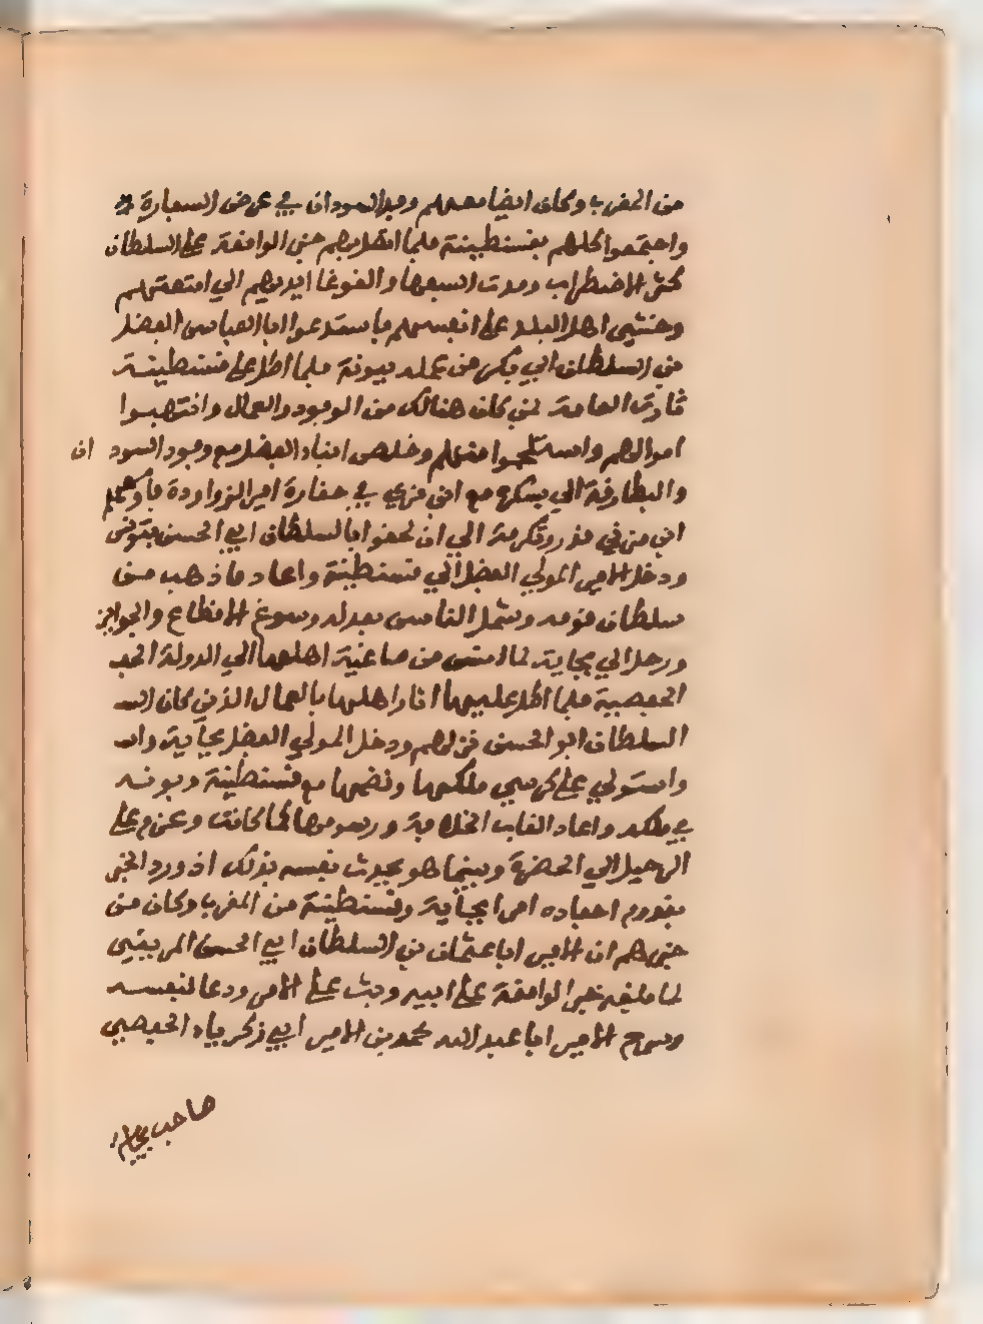 من المغرب وكان ايضا معهم وفد السودان في عرض السفارة
واجتمعوا كلهم بقسنطينة فلما اتصل بهم خبر الواقعة على السلطان
كثر الاضطراب ومدت السفها والغوغا ايديهم الي امتعتهم
وخشي اهل البلد على انفسهم فاستدعوا ابا العباس الفضل
من السلطان ابي بكر من عمله ببونة فلما اطل على قسنطينة
ثارت العامة لمن كان هنالك من الوفود والعمال وانتهبوا
اموالهم واستلحموا منهم وخلص ابناء الفضل مع وفود السود ان
والبطارقة الي بسكرة مع ابن مزني في خفارة امير الزواودة فاوسعهم
ابن مزني وتكرمة الي ان لحقوا بالسلطان ابي الحسن بتونس
ودخل الامير المولي الفضل الي قسنطينة واعاد ما ذهب من
سلطان قومه وشمل الناس بعدله وسوغ الاقطاع والجوايز
ورحل الي بجاية لما من صاغية اهلها الي الدولة الحف
الحفصية فلما اطل عليها ثار اهلها بالعمال الذين كان الس
السلطان ابو الحسن نزلهم ودخل المولي الفضل بجاية واس
واستولي على كرسي ملكها ونضمها مع قسنطينة وبونه
في ملكه واعاد القاب الخلافة ورسومها كما كانت وعزم على
الرحيل الي الحضرة وبينما هو يحدث نفسه بذلك اذ ورد الخبر
بقدوم احفاده امرا بجاية وقسنطينة من المغرب وكان من
خبرهم ان الامير ابا عثمان بن السلطان ابي الحسن المريني
لما بلغه خبر الواقعة على ابيه وثب على الامر ودعا لنفسه
وسرح الامير ابا عبد الله محمد بن الامير ابي زكرياء الحفصي
صاحب بجاية